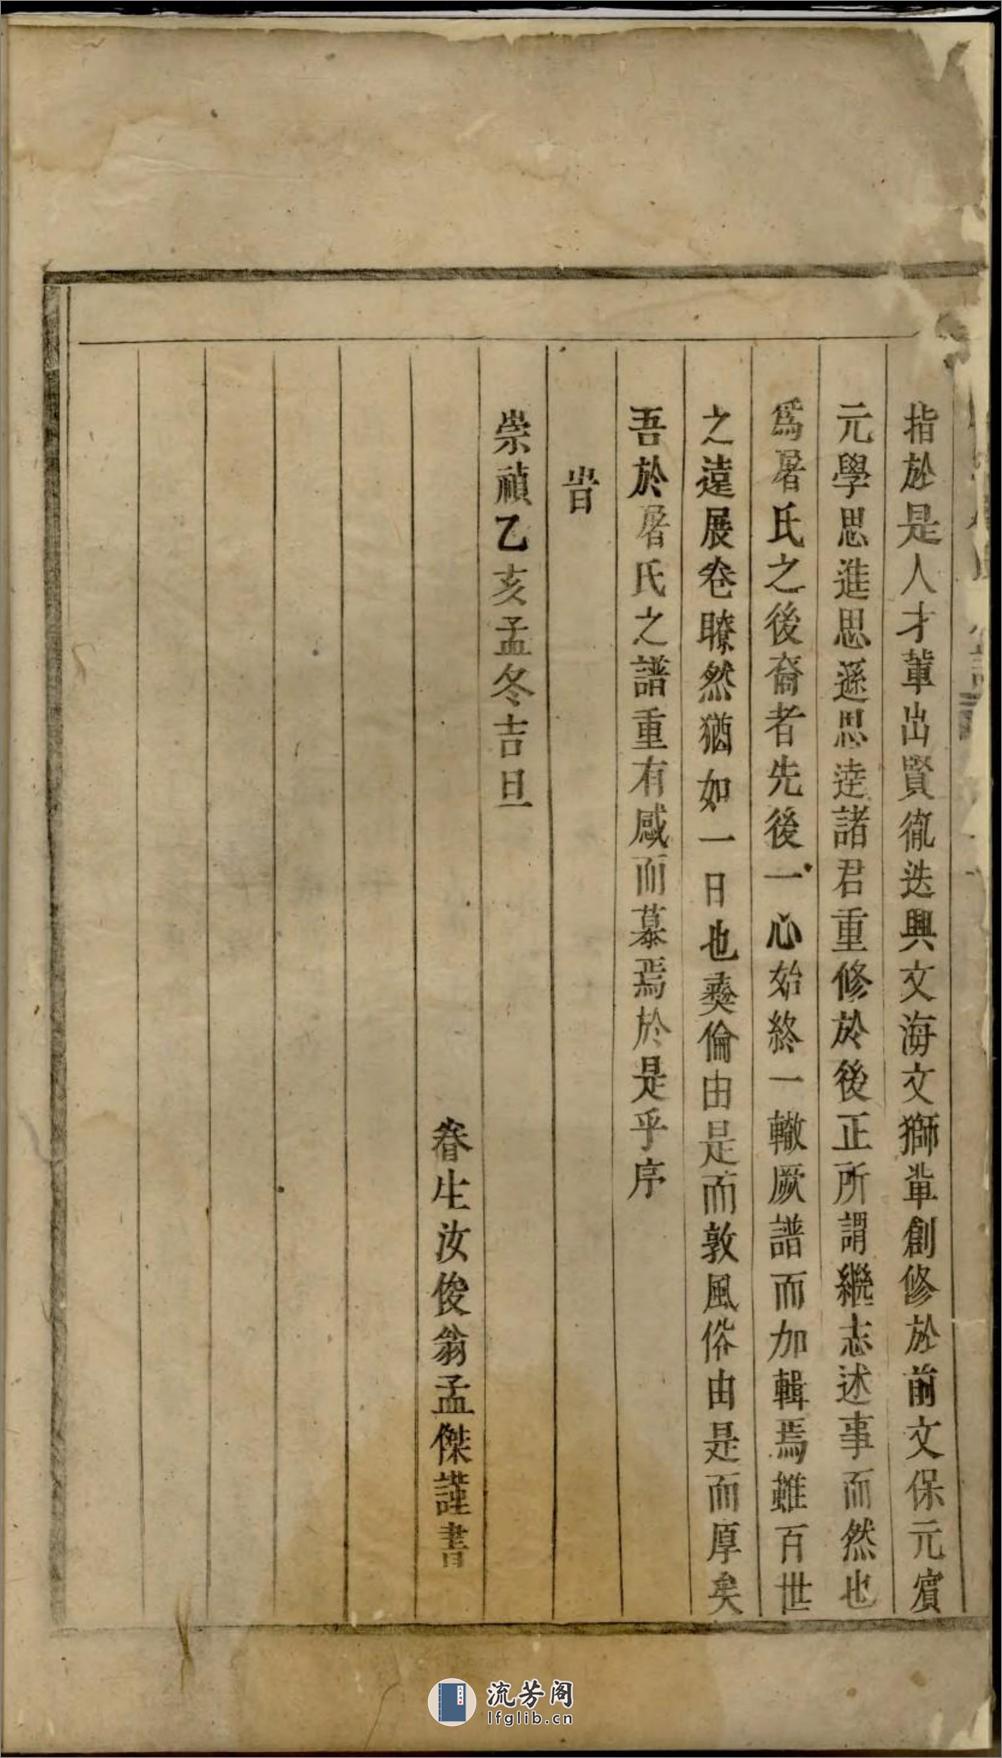 指於是人才軰出賢㣧迭興文海文獅軰創修於前文保元賔
元學思進思遜思逵諸君重修於後正所謂繼志述事而然也
爲屠氏之後裔者先後一心始終一轍厥譜而加輯焉雖百世
之遠展卷瞭然猶如一日也彞倫由是而敦風俗由是而厚矣
吾於屠氏之譜重有感而慕焉於是乎序
旹
崇禎乙亥孟冬吉旦
眷生汝俊翁孟傑謹書
流芳阁
lfglib.cn